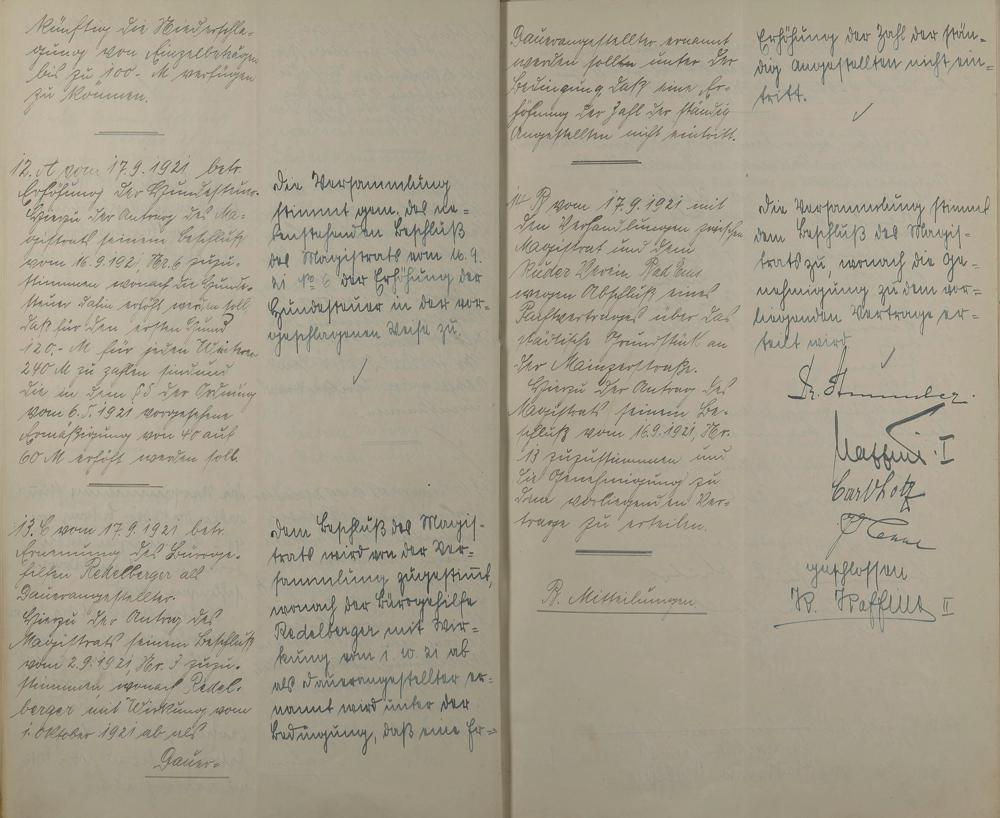 künftig die Niederschla-
gung von Einzelbeträgen
bis zu 100.- M verfügen
zu können.
12. A vom 17.9.1921 betr.
Erhöhung der Hundesteuer.
Hierzu der Antrag des Ma-
gistrats seinem Beschluß
vom 16.9.1921, Nr. 6 zuzu-
stimmen wonach die Hunde-
steuer dahin erhöht werden soll,
daß für den ersten Hund
120.- M für jeden Weiteren
240 M zu zahlen sind und
die in dem § 5 der Ordnung
vom 6.5.1921 vorgesehene
Ermäßigung von 40 auf
60 M erhöht werden soll.
13. C vom 17.9.1921 betr.
Ernennung des Büroge-
hilfen Redelberger als
Dauerangestellter.
Hierzu der Antrag des
Magistrats seinem Beschluß
vom 2.9.1921, Nr. 3 zuzu-
stimmen, wonach Redel-
berger mit Wirkung vom
1. Oktober 1921 ab als
Dauer=
Die Versammlung
stimmt gem. des ne=
benstehenden Beschluß
des Magistrats vom 16.9.
21 No 6 der Erhöhung der
Hundesteuer in der vor-
geschlagenen Weise zu.
Dem Beschluß des Magis-
trats wird von der Ver-
sammlung zugestimmt,
wonach der Bürogehilfe
Redelberger mit Wir=
kung vom 1.10.21 ab
als Dauerangestellter er-
nannt wird unter der
Bedingung, daß eine Er=
Dauerangestellter ernannt
werden sollen unter der
Bedingung, daß eine Er-
höhung der Zahl der ständig
Angestellten nicht eintritt.
14 B vom 17.9.1921 mit
den Verhandlungen zwischen
Magistrat und dem
Ruder Verein Bad Ems
wegen Abschluß eines
Pachtvertrages über das
städtische Grundstück an
der Mainzerstraße.
Hierzu der Antrag des
Magistrats seinem Be-
schluß vom 16.9.1921, Nr.
13 zuzustimmen und
die Genehmigung zu
dem vorliegenden Ver-
trage zu erteilen.
B. Mitteilungen
Erhöhung der Zahl der stän-
dig Angestellten nicht ein=
tritt.
Die Versammlung stimmt
dem Beschluß des Magis-
trats zu, wonach die Ge-
nehmigung zu dem vor=
liegenden Vertrage er-
teilt wird
geschlossen